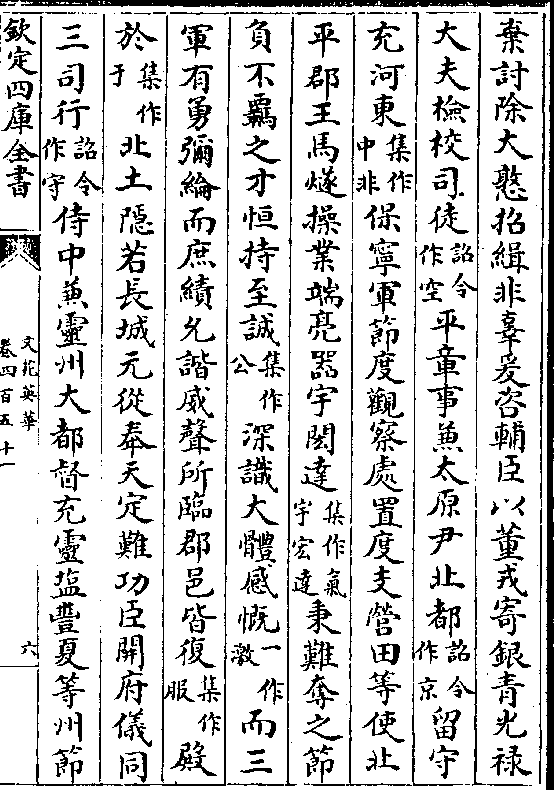 棄討除大憝招緝非辜爰咨輔臣以董戎寄銀青光禄
大夫檢校司徒詔令作空平章事兼太原尹北都詔令作京留守
充河東集作中非保寧軍節度觀察處置度支營田等使北
平郡王馬燧操業端亮器宇閎達集作氣宇宏達秉難奪之節
負不羈之才恒持至誠集作公深識大體感慨一作激而三
軍有勇彌綸而庶績允諧威聲所臨郡邑皆復集作服殿
於集作于北土隠若長城元從奉天定難功臣開府儀同
三司行詔令作守侍中兼靈州大都督充靈塩豐夏等州節
欽定四庫全書
文苑英華
卷四百五十一
六